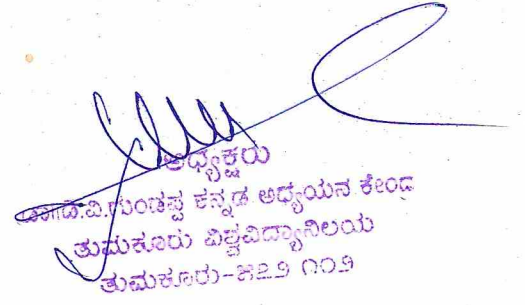 ಅಧ್ಯಕ್ಷರು
ಡಾ.ಡಿ.ವಿ.ಗುಂಡಪ್ಪ ಕನ್ನಡ ಅಧ್ಯಯನ ಕೇಂದ್ರ
ತುಮಕೂರು ವಿಶ್ವವಿದ್ಯಾನಿಲಯ
ತುಮಕೂರು-೫೭೨ ೧೦೨